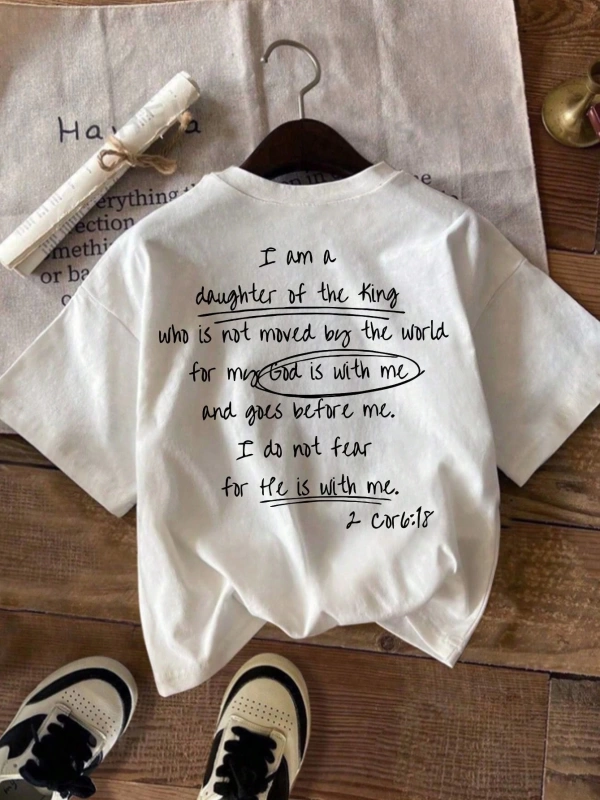 I am a
daughter of the King
who is not moved by the world
for my God is with me
and goes before me.
I do not fear
for He is with me.
2 Cor6:18